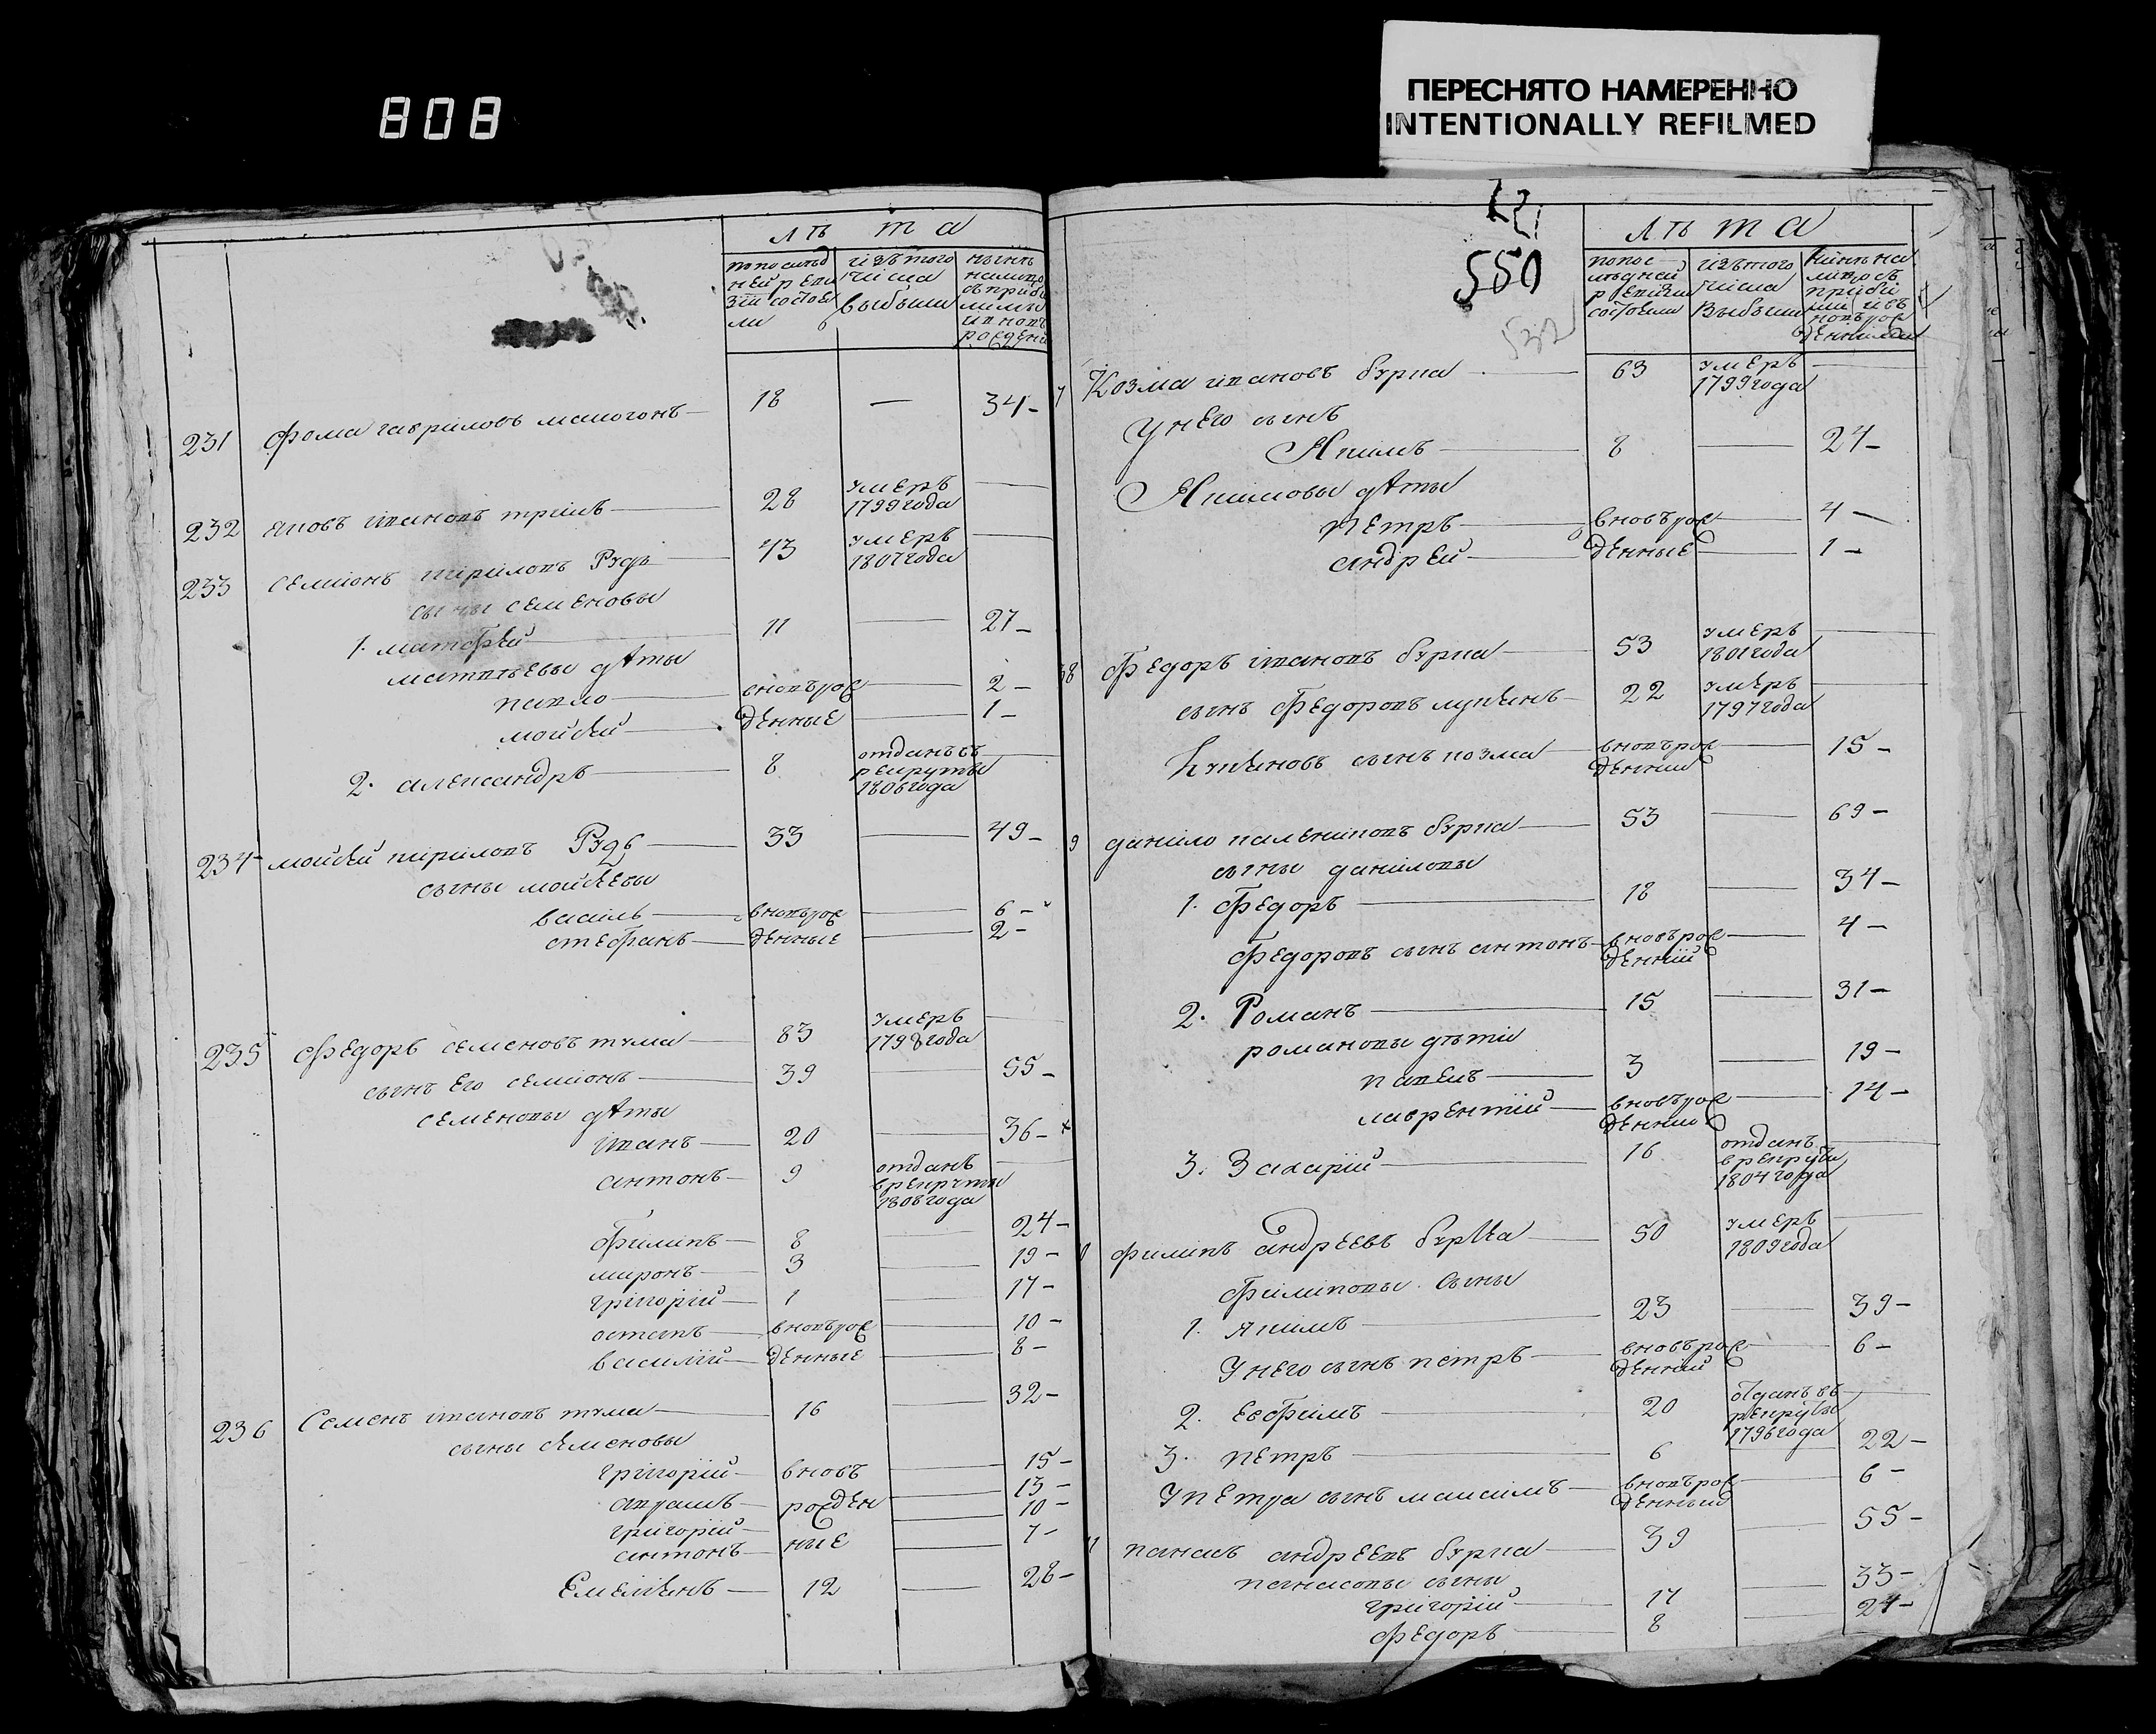 808
ПЕРЕСНЯТО НАМЕРЕННО
INTENTIONALLY REFILMED
лѣта
попослѣд
ней реви
зіи состоя
ли
изътого
числа
выбыли
нынѣ
налицо
съприбы
лыми
ивновь
рожден
231 фома гавриловъ макогонъ 18 — 34
232 яковъ ивановъ 28 умеръ
1799 года
233 семіонъ кириловъ Рудь 43 умеръ
1807 года
сыны семеновы
1. матфей 11 27
матвѣевы дѣты
павло вновърож 2
мойсей денные 1
2. александръ 8 отданъ въ
рекруты
1806 года
234 мойсей кириловъ Рудь 33 49
сыны мойсѣевы
василь вновърож 6
стефанъ денные 2
235 федоръ семеновъ тума 83 умеръ
1798 года
сынъ его семіонъ 39 55
семеновы дѣты
иванъ 20 36
антонъ 9 отданъ
врекруты
1808 года
филипъ 8 24
миронъ 3 19
григорій 1 17
остапъ вновърож 10
василій денные 8
236 Семенъ ивановъ тума 16 32
сыны семеновы
григорій вновъ 15
рожден 13
григорій 10
антонъ ные 7
Емелянъ 12 28
550
532
лѣта
попос
лѣдней
ревизіи
состояли
изътого
числа
выбыли
нынѣ на
лицо съ
прибы
лыми ивъ
новърож
денными
7 Козма ивановъ бурка 63 умеръ
1799 года
Унего сынъ
Якимъ 8 24
Якимовы дѣты
петръ вновърож 4
андрей денные 1
38 федоръ ивановъ бурка 53 умеръ
1801 года
сынъ федоровъ лукянъ 22 умеръ
1797 года
Лукяновъ сынъ козма вновърож 15
денный
9 данило бурка 53 69
сыны даниловы
1. федоръ 18 34
федоровъ сынъ антонъ вновърож 4
денній
2. Романъ 15 31
романовы дѣти
павелъ 3 19
лаврентій вновърож 14
денній
3. Захарій 16 отданъ
врекруты
1804 года
0 филипъ андреевъ бурка 50 умеръ
1809 года
филиповы сыны
1. якимъ 23 39
Унего сынъ петръ вновърож 6
денній
2. евфимъ 20 отданъ въ
рекруты
1796 года
3. петръ 6 22
Упетра сынъ максимъ вновърож 6
денный
панасъ андреевъ бурка 39 55
панасовы сыны
григорій 17 33
федоръ 8 24